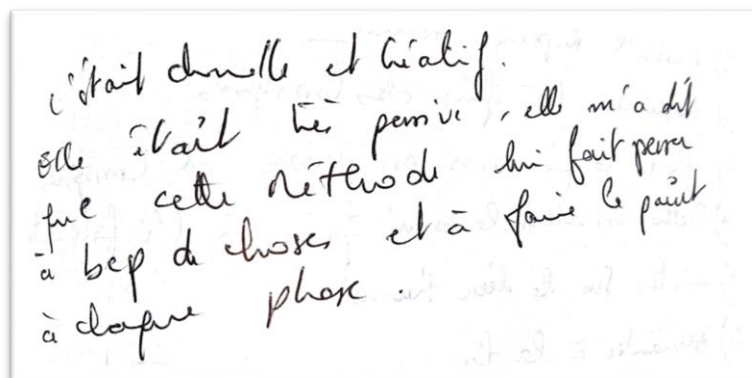 c'était duelle et créatif.
elle était très pensive, elle m'a dit
que cette méthode lui fait penser
à bcp de choses et à faire le point
à chaque phase.